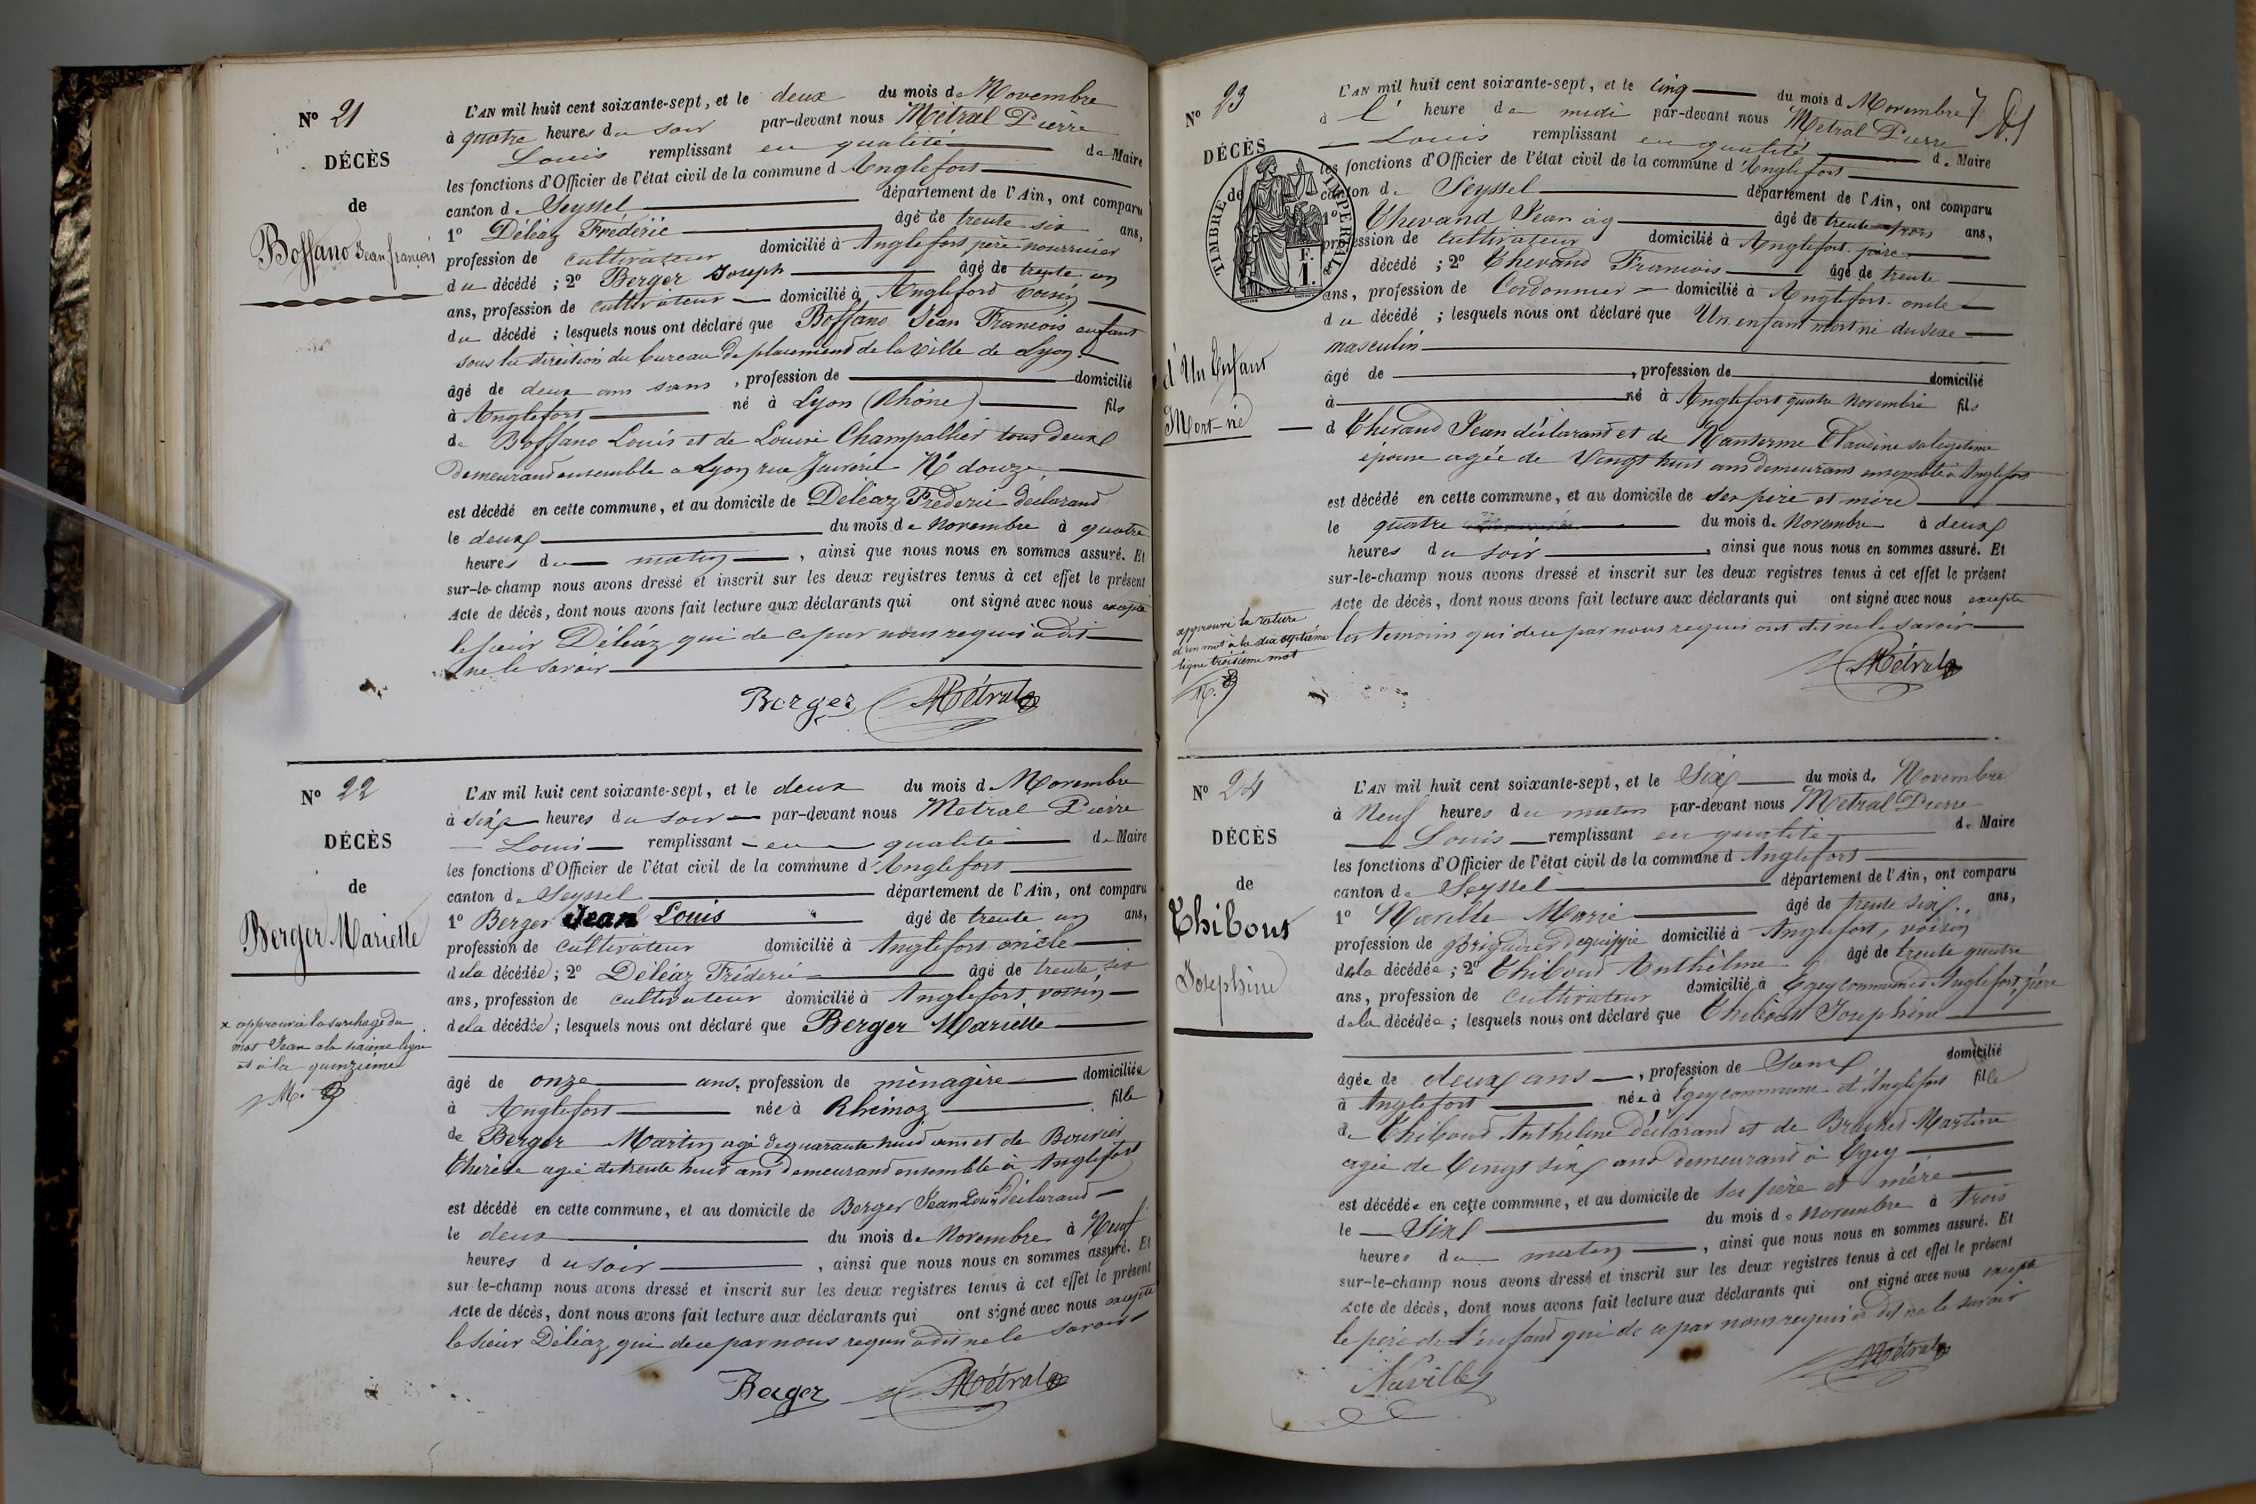 Nº 21
DÉCÈS
de
Boffano Jean françois
L'AN mil huit cent soixante-sept, et le deux du mois de Novembre
à quatre heures du soir par-devant nous Métral Pierre
Louis remplissant en qualité de Maire
les fonctions d'Officier de l'état civil de la commune d'Anglefort
canton de Seyssel département de l'Ain, ont comparu
1º Déléaz Frédéric âgé de trente six ans,
profession de cultivateur domicilié à Anglefort, père nourricier
du décédé ; 2º Berger Joseph âgé de trente un
ans, profession de cultivateur domicilié à Anglefort voisin
du décédé ; lesquels nous ont déclaré que Boffano Jean François enfant
sous la direction du bureau de placement de la Ville de Lyon
âgé de deux ans sans , profession de domicilié
à Anglefort né à Lyon (Rhône) fils
de Boffano Louis et de Louise Champallier tous deux
demeurand ensemble a Lyon rue Nº douze
est décédé en cette commune, et au domicile de Déléaz Frédéric déclarand
le deux du mois de Novembre à quatre
heures du matin , ainsi que nous nous en sommes assuré. Et
sur-le-champ nous avons dressé et inscrit sur les deux registres tenus à cet effet le présent
Acte de décès, dont nous avons fait lecture aux déclarants qui ont signé avec nous excepté
le sieur Déléaz qui de ce par nous requis a dit
ne le savoir
Berger Métral
Nº 22
DÉCÈS
de
Berger Mariette
x approuvé la surchage du
mot Jean a la sixième ligne
et à la quinzième
M.
L'AN mil huit cent soixante-sept, et le deux du mois de Novembre
à six heures du soir par-devant nous Métral Pierre
Louis remplissant en qualité de Maire
les fonctions d'Officier de l'état civil de la commune d'Anglefort
canton de Seyssel département de l'Ain, ont comparu
1º Berger Jean Louis âgé de trente un ans,
profession de cultivateur domicilié à Anglefort oncle
de la décédée ; 2º Déléaz Fréderic âgé de trente six
ans, profession de cultivateur domicilié à Anglefort voisin
de la décédée ; lesquels nous ont déclaré que Berger Mariette
âgé de onze ans, profession de ménagère domiciliée
à Anglefort née à Rhémoz fille
de Berger Martin agé de quarante huit ans et de Bouvier
Thérèse agée de trente huit ans demeurand ensemble à Anglefort
est décédé en cette commune, et au domicile de Berger Jean Louis déclarand
le deux du mois de Novembre à Neuf
heures du soir , ainsi que nous nous en sommes assuré. Et
sur-le-champ nous avons dressé et inscrit sur les deux registres tenus à cet effet le présent
Acte de décès, dont nous avons fait lecture aux déclarants qui ont signé avec nous excepté
le sieur Déléaz qui de ce par nous requis a dit ne le savoir
Berger Métral
Nº 23
DÉCÈS
de
TIMBRE IMPERIAL
F.
1.
d'Un Enfant
Mort-né
approuvé la rature
d'un mot à la dix septième
ligne troisième mot
M.
L'AN mil huit cent soixante-sept, et le cinq du mois d Novembre
à l' heure de midi par-devant nous Métral Pierre
Louis remplissant en qualité de Maire
les fonctions d'Officier de l'état civil de la commune d'Anglefort
canton de Seyssel département de l'Ain, ont comparu
1º Thevand Jean ag âgé de trente trois ans,
profession de cultivateur domicilié à Anglefort père
décédé ; 2º Thevand Francois âgé de trente
ans, profession de Cordonnier domicilié à Anglefort oncle
du décédé ; lesquels nous ont déclaré que Un enfant mort né du sexe
masculin
âgé de , profession de domicilié
à né à Anglefort quatre Novembre fils
d Thevand Jean déclarant et de Nanterme Claudine sa légitime
épouse agée de Vingt huit ans demeurans ensemble à Anglefort
est décédé en cette commune, et au domicile de ses père et mère
le quatre du mois de Novembre à deux
heures du soir , ainsi que nous nous en sommes assuré. Et
sur-le-champ nous avons dressé et inscrit sur les deux registres tenus à cet effet le présent
Acte de décès, dont nous avons fait lecture aux déclarants qui ont signé avec nous excepté
les temoins qui de ce par nous requis ont dit ne le savoir
Métral
Nº 24
DÉCÈS
de
Thiboud
Josephine
L'AN mil huit cent soixante-sept, et le Six du mois de Novembre
à Neuf heures du matin par-devant nous Métral Pierre
Louis remplissant en qualité de Maire
les fonctions d'Officier de l'état civil de la commune d'Anglefort
canton de Seyssel département de l'Ain, ont comparu
1º Marie âgé de trente six ans,
profession de Brigadier d'équippe domicilié à Anglefort, voisin
de la décédée ; 2º Thiboud Anthelme âgé de trente quatre
ans, profession de cultivateur domicilié à Egey commune d'Anglefort, père
de la décédée ; lesquels nous ont déclaré que Thiboud Josephine
âgée de deux ans , profession de Sans domicilié
à Anglefort née à Egey commune d'Anglefort fille
de Thiboud Anthelme déclarand et de Brachet Martine
agée de Vingt six ans demeurand à Egey
est décédée en cette commune, et au domicile de ses père et mère
le Six du mois de Novembre à trois
heures du matin , ainsi que nous nous en sommes assuré. Et
sur-le-champ nous avons dressé et inscrit sur les deux registres tenus à cet effet le présent
Acte de décès, dont nous avons fait lecture aux déclarants qui ont signé avec nous excepté
le père de l'enfand qui de ce par nous requis a dit ne le savoir
Métral